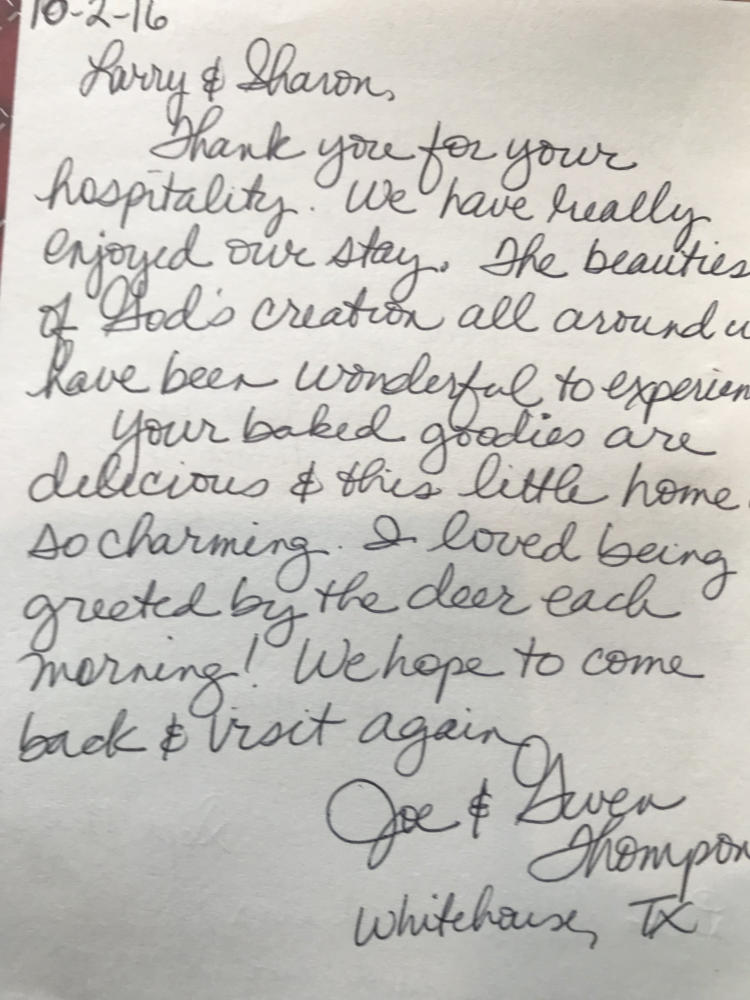 10-2-16
Larry & Sharon,
Thank you for your
hospitality. We have really
enjoyed our stay. The beauties
of God's creation all around u
have been wonderful to experien
Your baked goodies are
delicious & this little home
so charming. I loved being
greeted by the deer each
morning! We hope to come
back & visit again
Joe & Gwen
Thompon
Whitehouse, TX